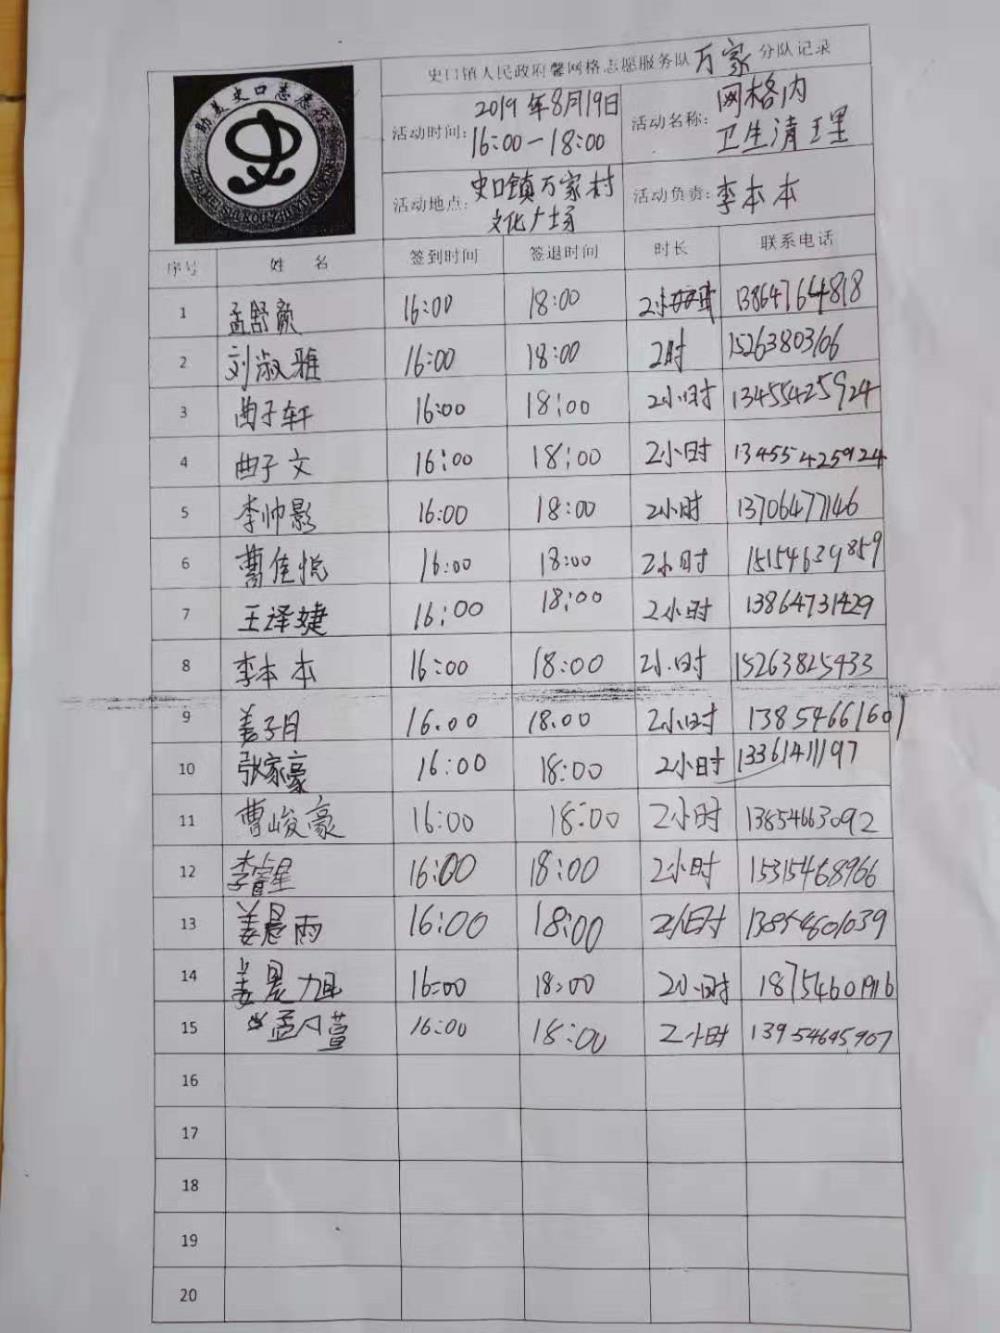 史口镇人民政府馨网格志愿服务队万家分队记录
助美史口志愿行
活动时间: 2019年8月19日 16:00-18:00 活动名称: 网格内卫生清理
活动地点: 史口镇万家村文化广场 活动负责: 李本本
序号 姓 名 签到时间 签退时间 时长 联系电话
1 孟舒颜 16:00 18:00 2小时 13864764818
2 刘淑雅 16:00 18:00 2时 15263803166
3 曲子轩 16:00 18:00 2小时 13455425924
4 曲子文 16:00 18:00 2小时 13455425924
5 李帅影 16:00 18:00 2小时 13706477146
6 曹佳悦 16:00 18:00 2小时 15154639859
7 王泽婕 16:00 18:00 2小时 13864731429
8 李本本 16:00 18:00 2小时 15263825433
9 姜子月 16:00 18:00 2小时 13854661601
10 张家豪 16:00 18:00 2小时 13361411197
11 曹峻豪 16:00 18:00 2小时 13854663092
12 李睿星 16:00 18:00 2小时 15315468966
13 姜晨雨 16:00 18:00 2小时 13854601039
14 姜晨旭 16:00 18:00 2小时 18754601916
15 孟凡萱 16:00 18:00 2小时 13954645907
16
17
18
19
20